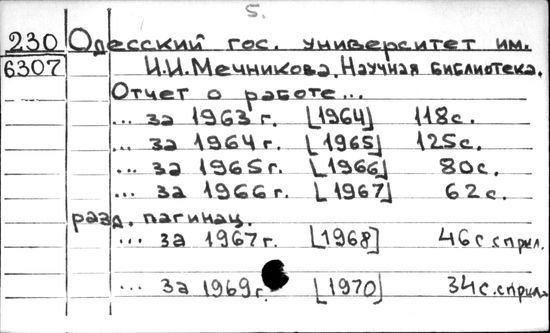 5.
230 Одесский гос. университет им.
6307 И.И.Мечникова. Научная библиотека.
Отчет о работе...
... за 1963 г. [1964] 118с.
... за 1964 г. [1965] 125с.
... за 1965 г. [1966] 80с.
... за 1966 г. [1967] 62с.
разд. пагинац.
... за 1967 г. [1968] 46с с прил.
... за 1969 г. [1970] 34с. с прил.